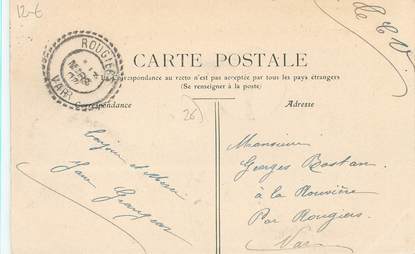 12-€
C C V
ROUGIERS
VAR
CARTE POSTALE
La Correspondance au recto n'est pas acceptée par tous les pays étrangers
(Se renseigner à la poste)
Correspondance
Adresse
26
Bonjour et Merci
Monsieur
Georges Rostan
à la Rouvière
Par Rougiers
Var